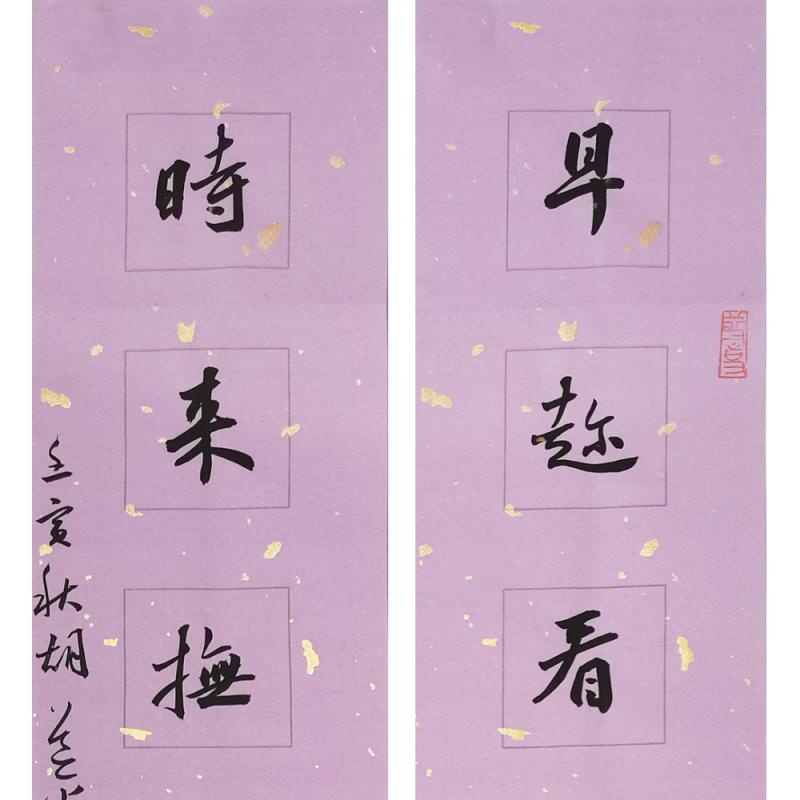 早趂看
時来撫
壬寅秋胡